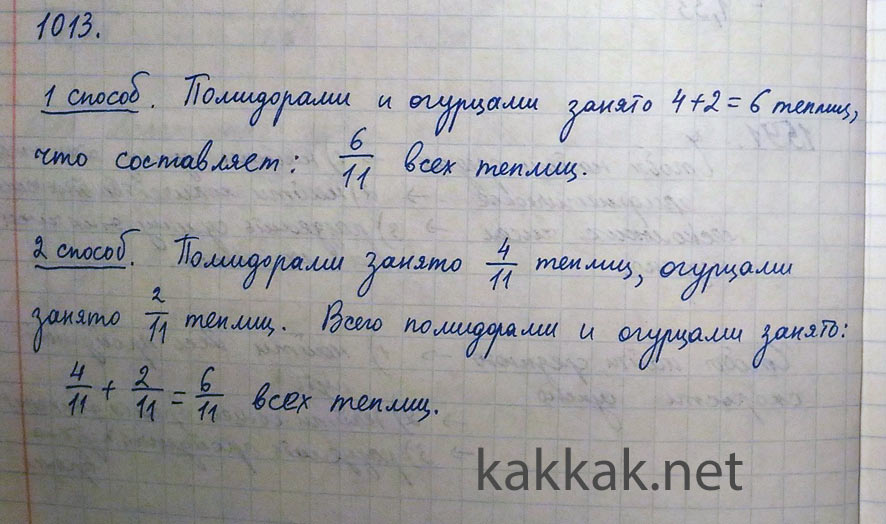 1013.
1 способ. Помидорами и огурцами занято 4+2=6 теплиц,
что составляет: 6/11 всех теплиц.
2 способ. Помидорами занято 4/11 теплиц, огурцами
занято 2/11 теплиц. Всего помидорами и огурцами занято:
4/11 + 2/11 = 6/11 всех теплиц.
kakkak.net